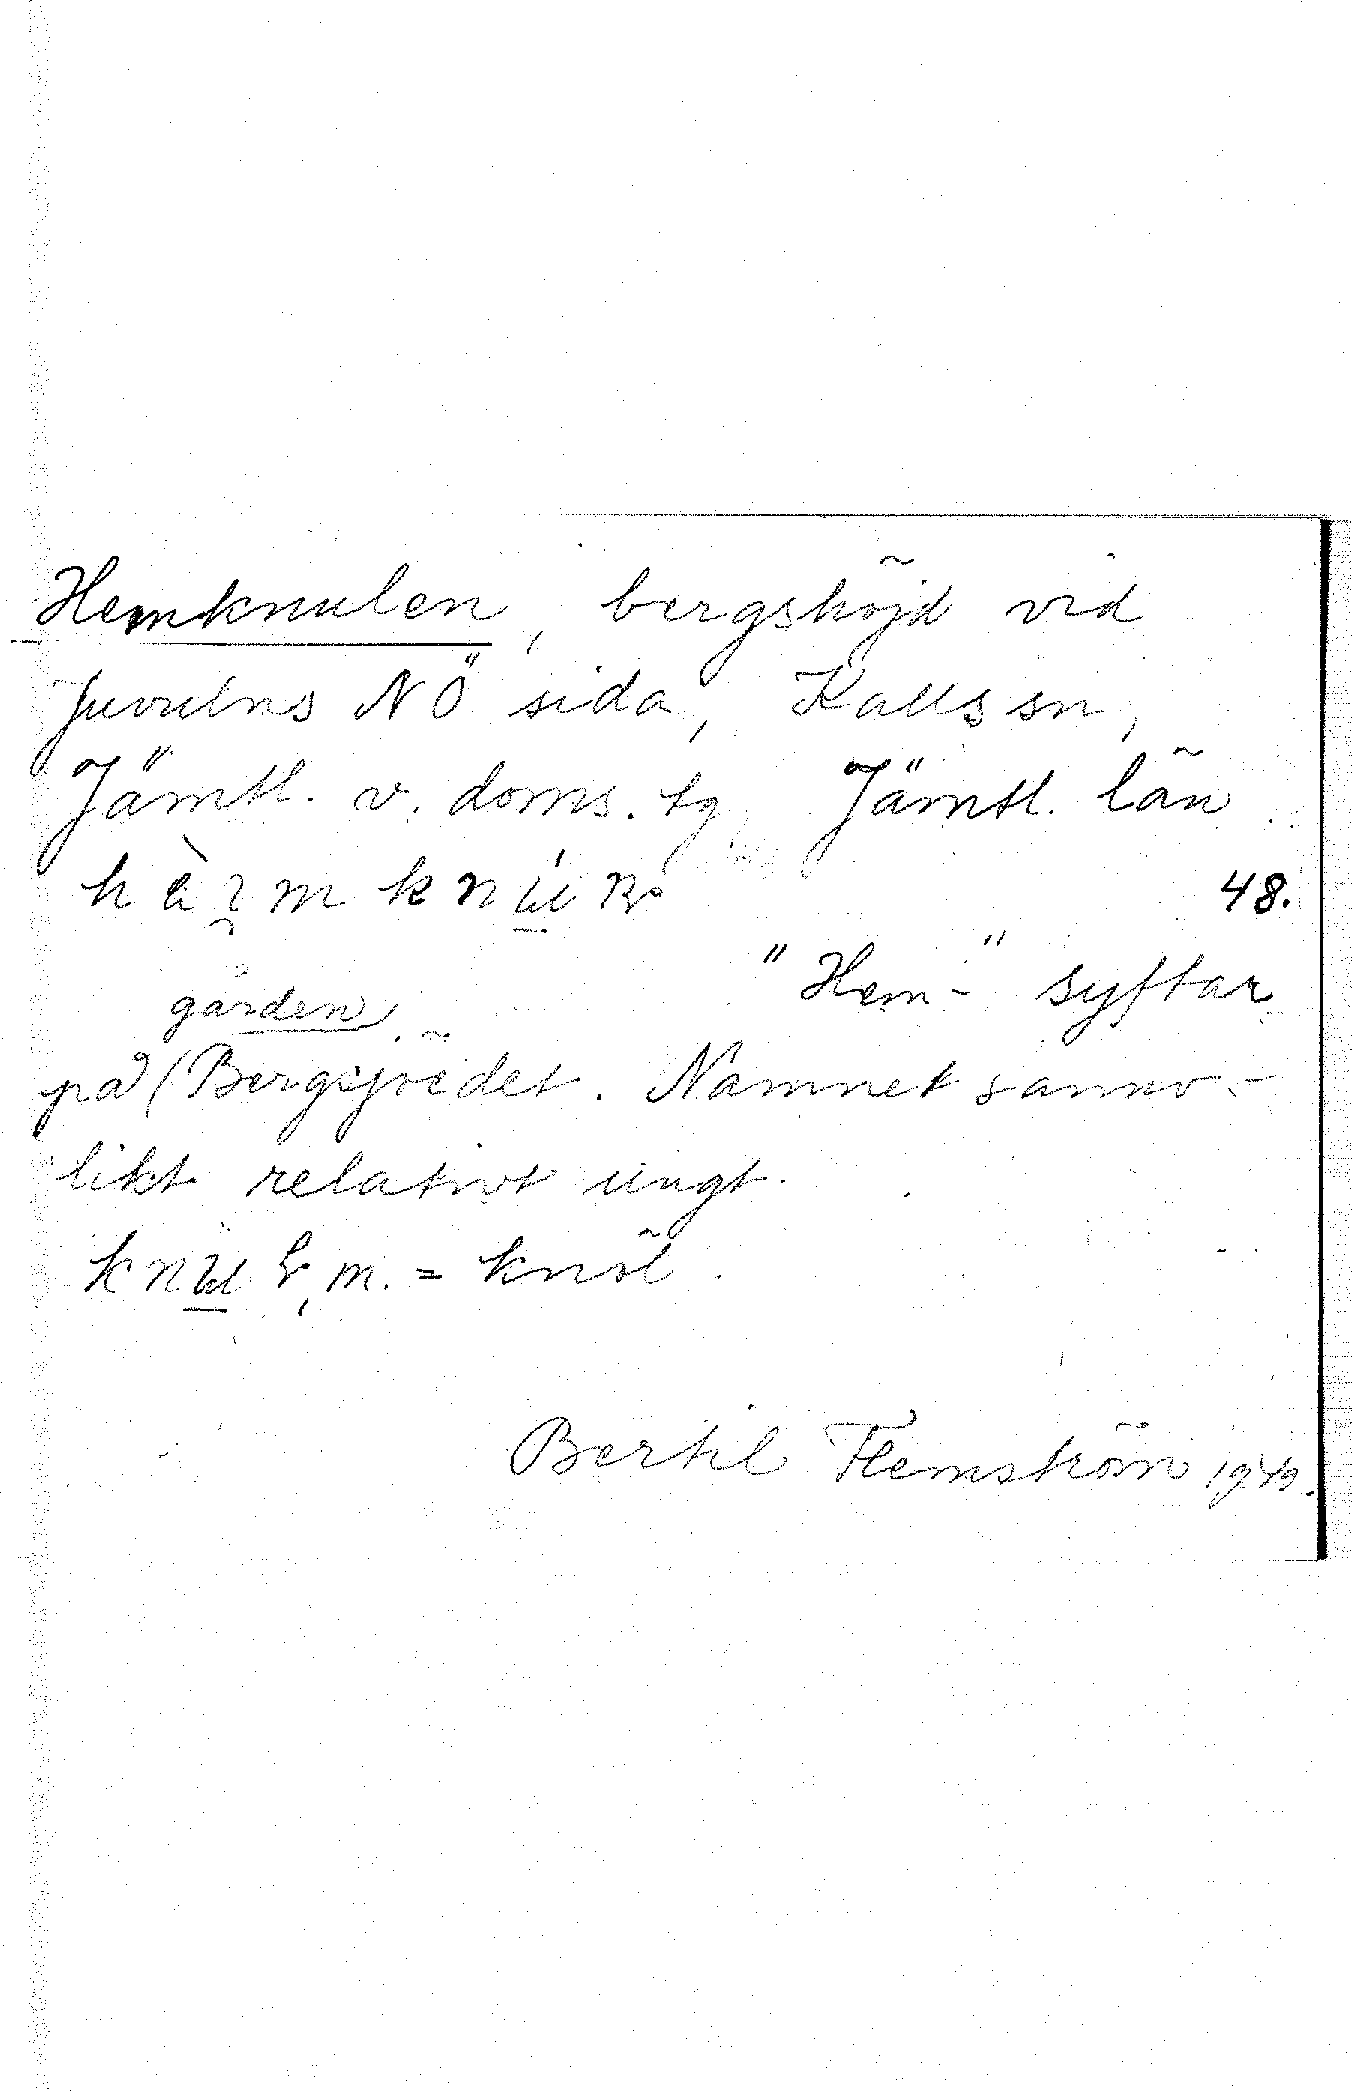 Hemknulen, bergshöjd vid
Juvulns NÖ sida, Kalls sn,
Jämtl. v. doms. tg, Jämtl. län
48.
"Hem-" syftar
gården
på (Bergsjoëdet. Namnet sanno-
likt relativt ungt.
m. = knöl.
Bertil Flemström 1949.